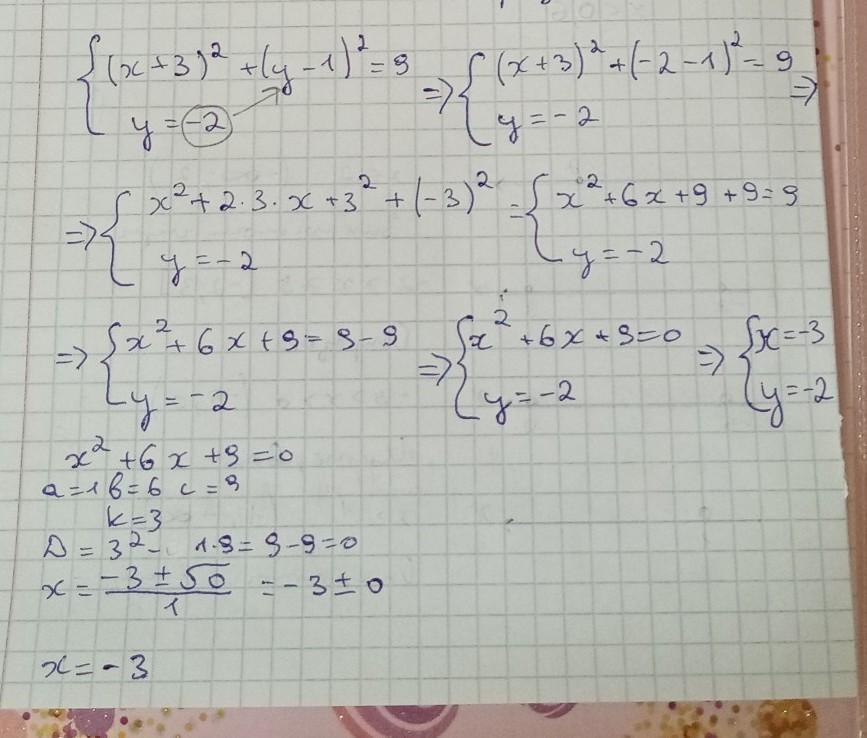 { (x+3)² + (y-1)² = 9 => { (x+3)² + (-2-1)² = 9 =>
y = -2 y = -2
=> { x² + 2·3·x + 3² + (-3)² = { x² + 6x + 9 + 9 = 9
y = -2 y = -2
=> { x² + 6x + 9 = 9 - 9 => { x² + 6x + 9 = 0 => { x = -3
y = -2 y = -2 y = -2
x² + 6x + 9 = 0
a = 1 b = 6 c = 9
k = 3
D = 3² - 1·9 = 9 - 9 = 0
x = (-3 ± √0)/1 = -3 ± 0
x = -3